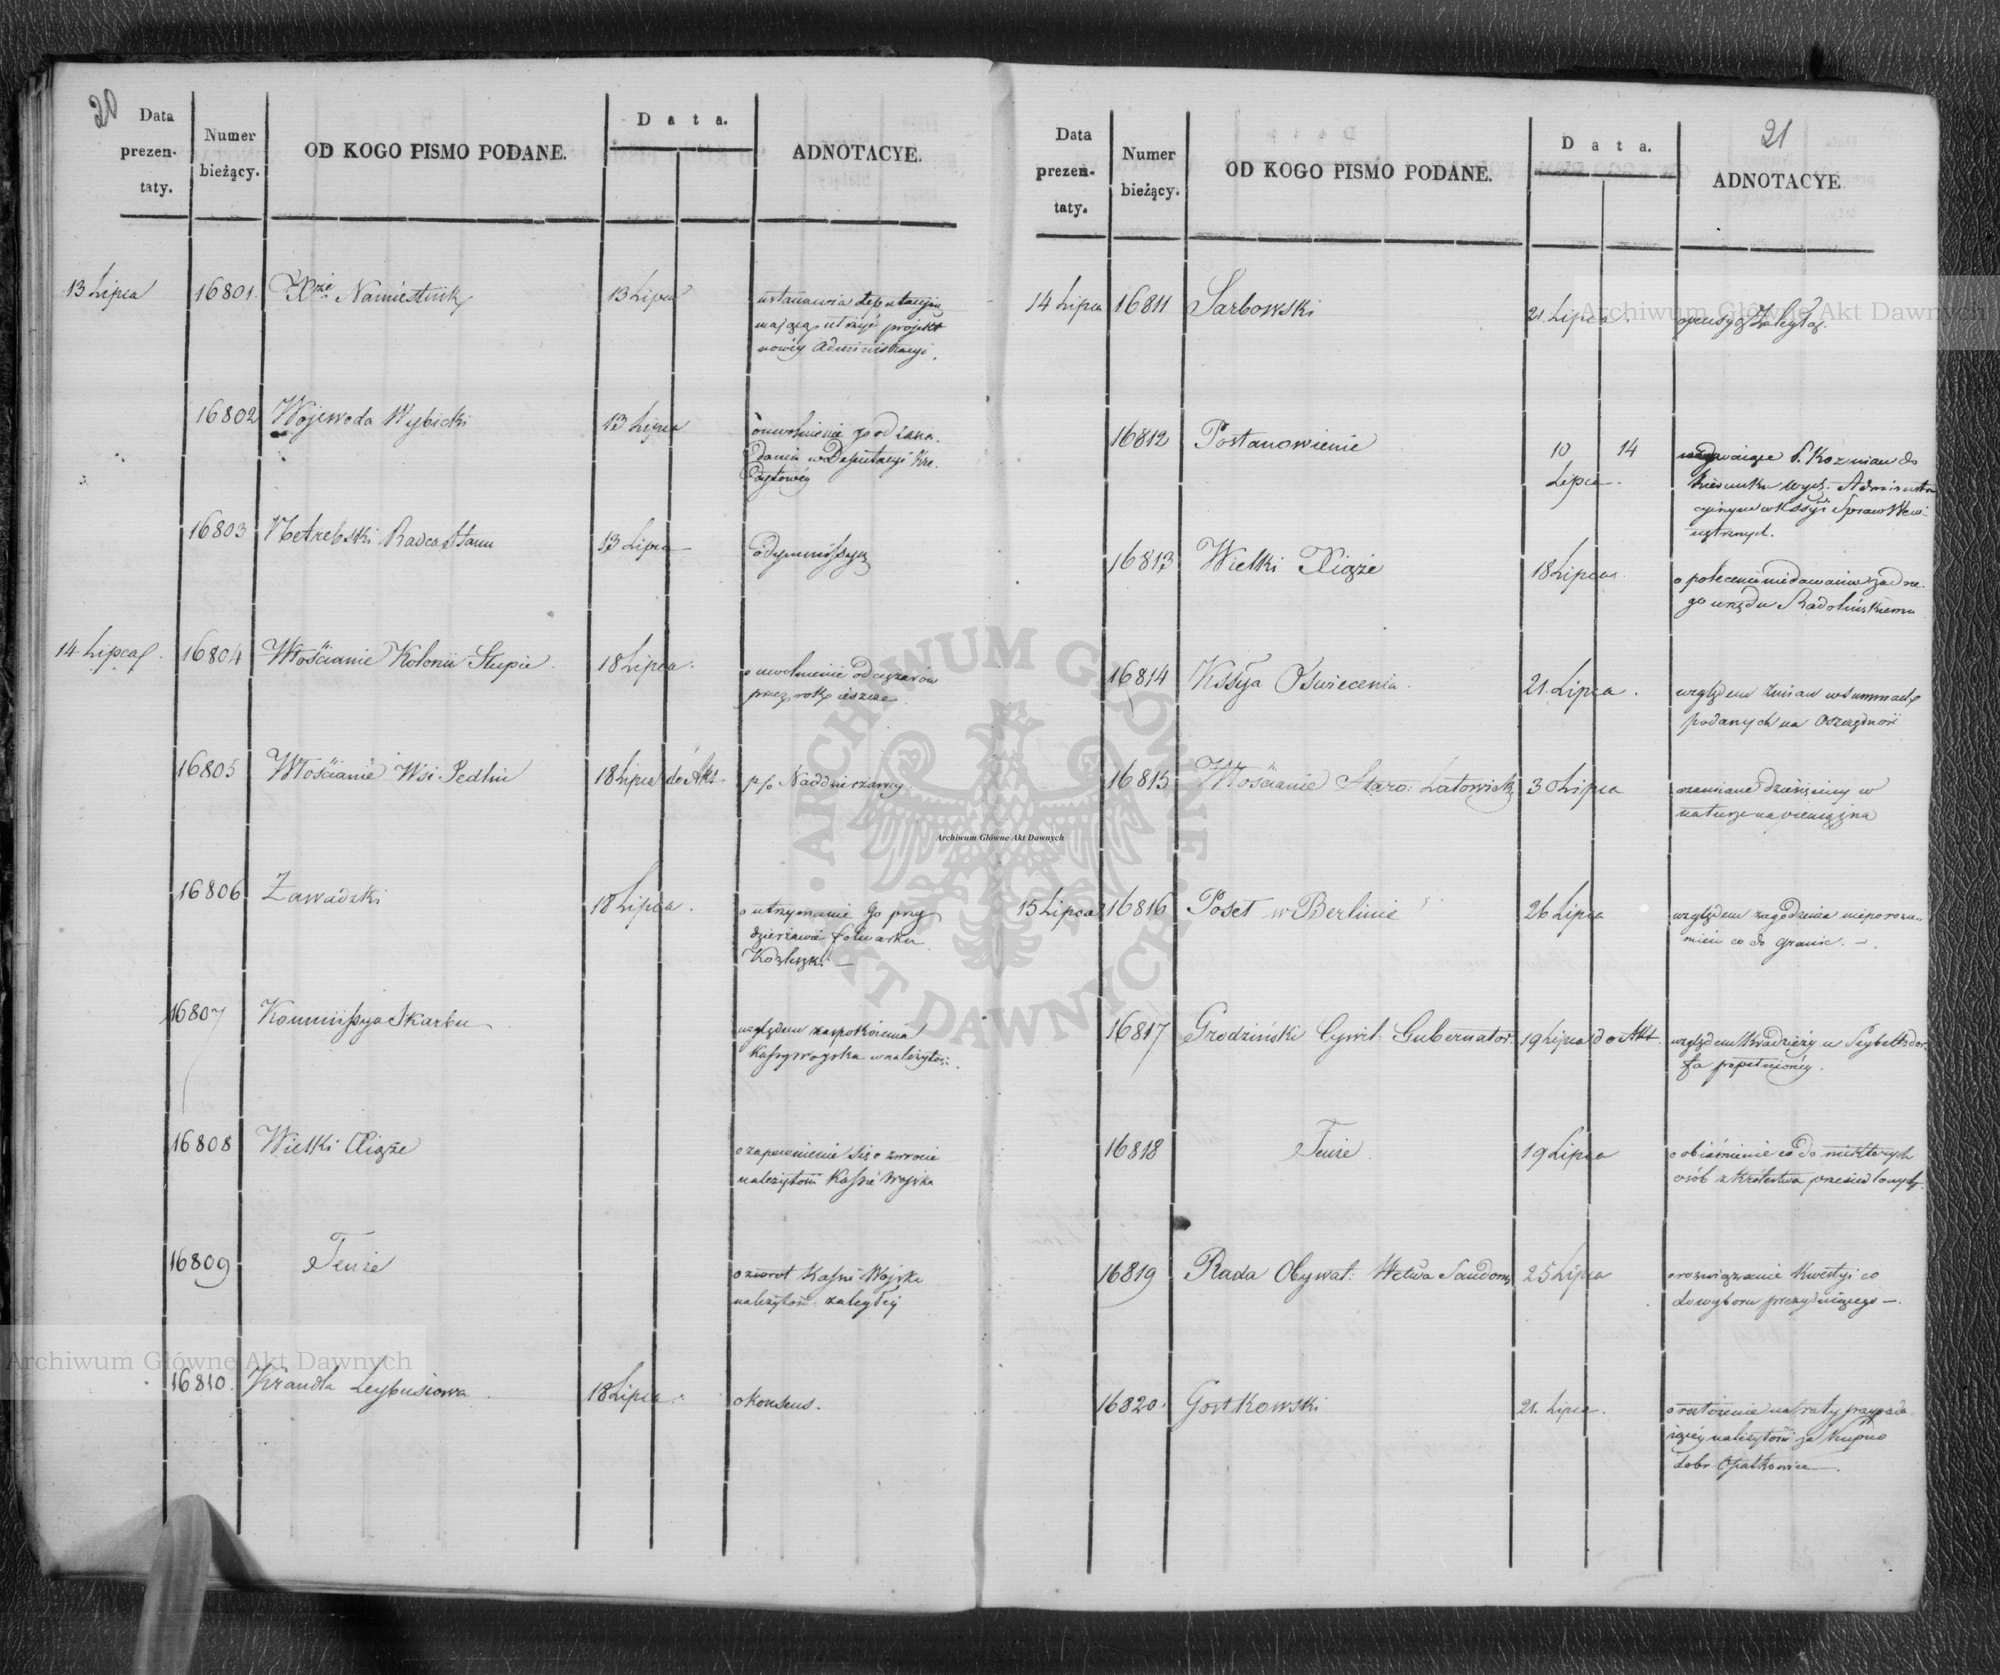 20
Data prezen- taty.
Numer bieżący.
OD KOGO PISMO PODANE.
Data.
ADNOTACYE.
13 Lipca 16801. Xże Namiestnik 13 Lipca ustanawia deputacyią
mającą ułożyć projekt
nowéy Administracyi.
16802 Wojewoda Wybicki 13 Lipca o uwolnienie go od zasia-
dania w Deputacyi Kre-
dytowéy
16803 Radca Stanu 13 Lipca o dymmissyą
14 Lipca 16804 Włościanie Kolonii Słupie 18 Lipca. o uwolnienie od ciężarów
przez rok jeszcze
16805 Włościanie Wsi Pedlin 18 Lipca do Akt. p/o Naddzierżawcy
16806 Zawadzki 18 Lipca. o utrzymanie go przy
dzierżawie folwarku
16807 Kommissya Skarbu względem zaspokoienia
Kassy woyska w należytoś:
16808 Wielki Xiąże o zapewnienie się o zwrocie
należytości Kassie Woyska
16809 Tenże o zwrot Kassie Woyska
należytości zaległéy
16810. Leybusiowa 18 Lipca. o konsens.
21
Data prezen- taty.
Numer bieżący.
OD KOGO PISMO PODANE.
Data.
ADNOTACYE
14 Lipca 16811 Sarbowski 21. Lipca. o pensyą zaległą.
16812 Postanowienie 10 14 P. Kozmian do
Lipca. kierunku wydz. Administra
cyinym w Kssyi Spraw Wew-
nętrznych.
16813 Wielki Xiąże 18 Lipca. o poleceniu niedawania żadne-
go urzędu Radolińskiemu
16814 Kssya Oświecenia. 21. Lipca. względem zmian w summach
podanych na oszczędność
16815 Włościanie Staro: Latowick 30 Lipca o zamianę dziesięciny w
naturze na pieniężną
15 Lipca 16816 Poseł w Berlinie 26 Lipca względem zagodzenia nieporozu-
mień co do granic. —.
16817 Grodziński Cywil: Gubernator. 19 Lipca do Akt. względem kradzieży u Seybeltsdor-
fa popełnionéy.
16818 Tenże. 19 Lipca o obiaśnienie co do niektórych
osób z Królestwa przesiedlonych.
16819 Rada Obywat: Wdztwa Sandom. 25 Lipca o rozwiązanie kwestyi co
do wyboru prezyduiącego —.
16820. Gostkowski 21. Lipca. o rozłożenie na raty przypada-
iącéy należytości za kupno
dobr Opatkowice.
Archiwum Główne Akt Dawnych
Archiwum Główne Akt Dawnych
Archiwum Główne Akt Dawnych
ARCHIWUM GŁÓWNE AKT DAWNYCH